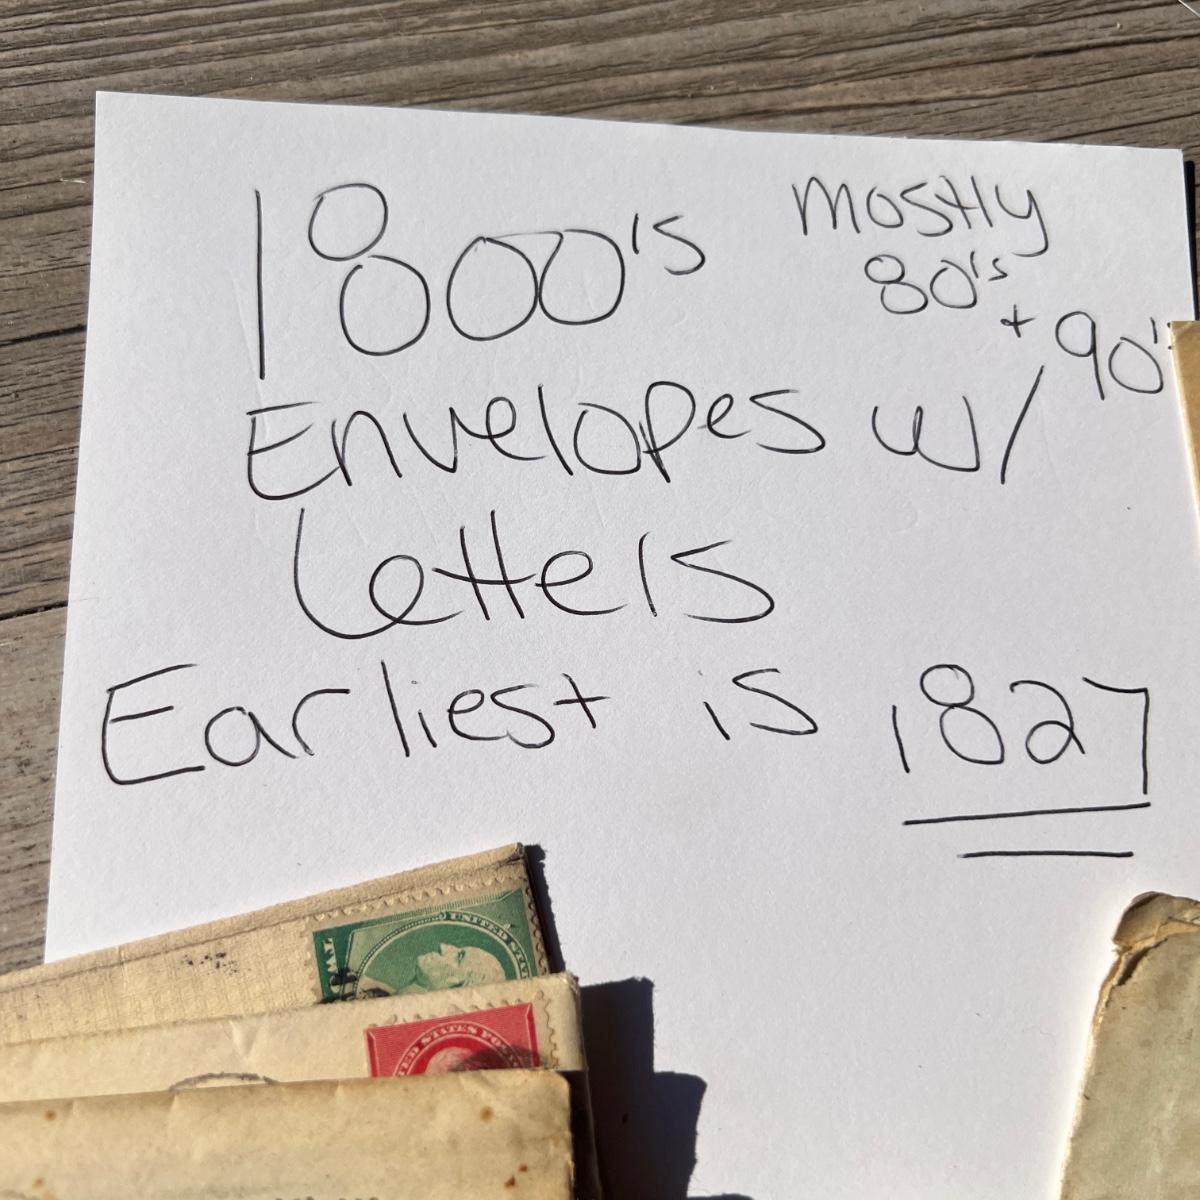 1800's
mostly
80's
+ 90's
Envelopes w/
Letters
Earliest is 1827
UNITED STATE
ED STATES POS